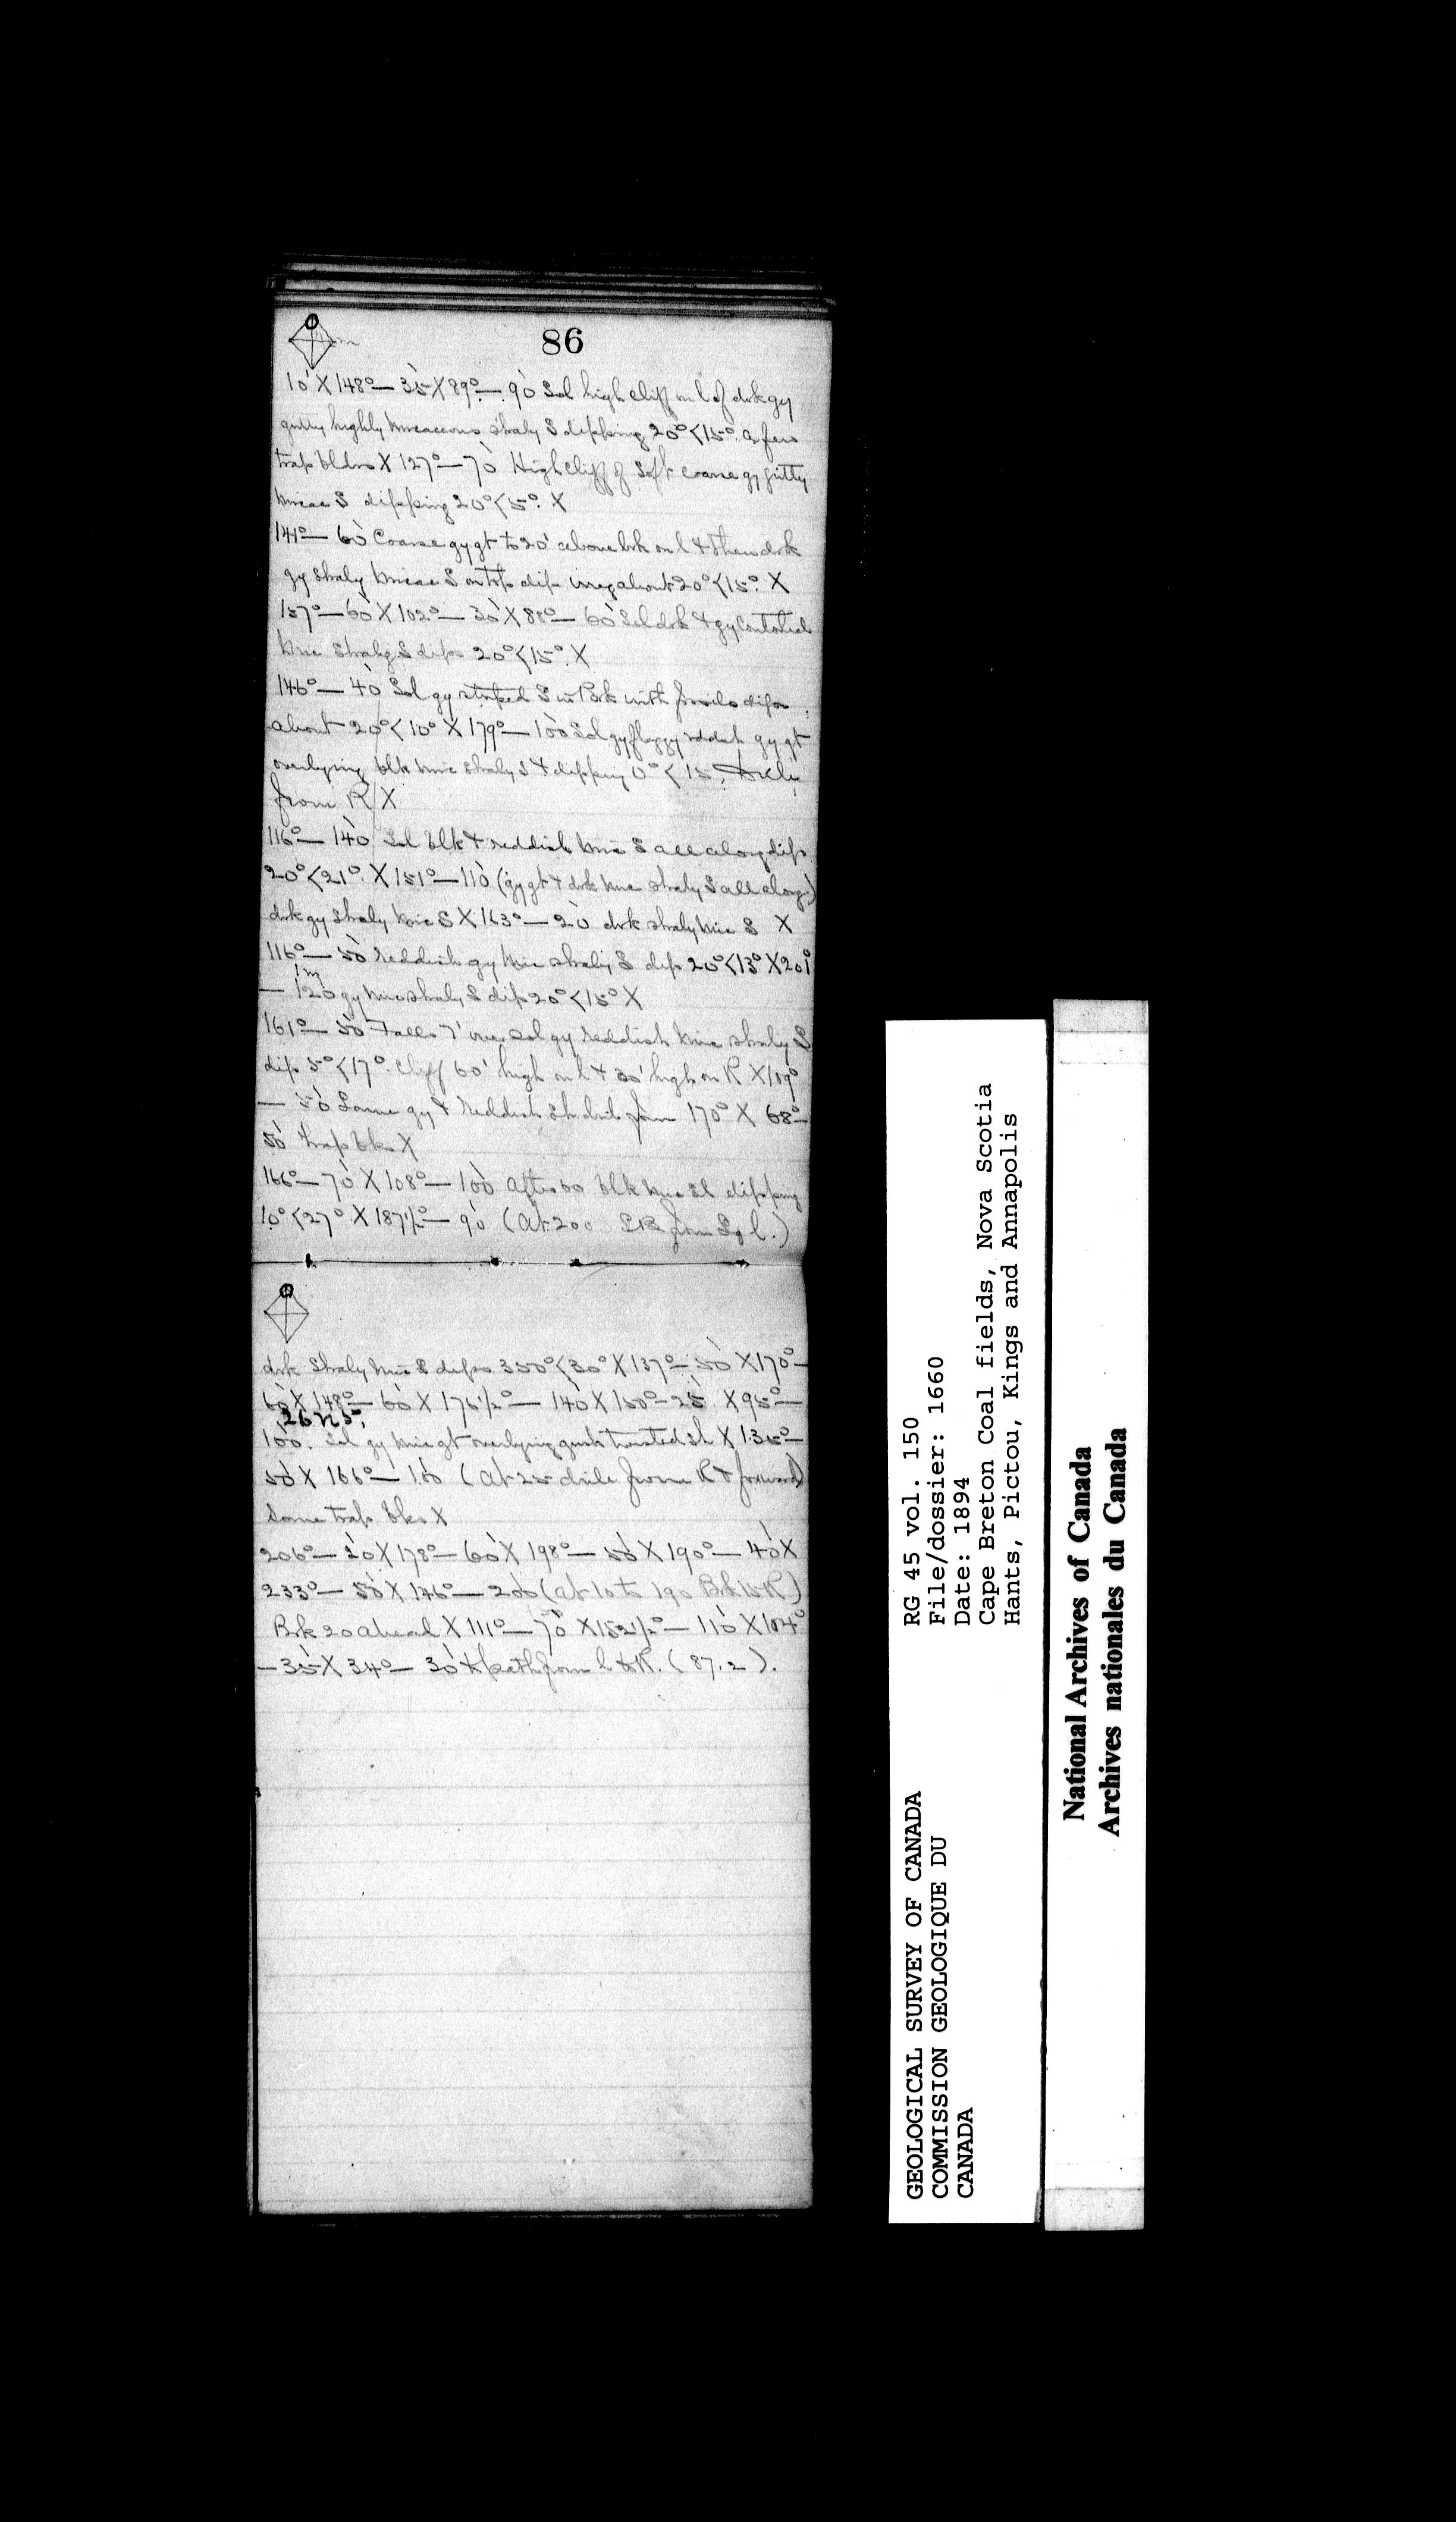 86
10' X 148° — 35 X 89° — 90 Sol high cliff on l of drk gy
gritty highly micaceous shaly S dipping 20° < 15°. a few
trap bldrs X 127° — 70 High cliff of soft coarse gy gritty
micac S dipping 20° < 5°. X
141° — 60 Coarse gy gt to 20' above brk on l & then drk
gy shaly micac S on top dip irreg about 20° < 15°. X
157° — 60 X 102° — 30 X 88° — 60 Sol drk & gy contorted
mic shaly S dips 20° < 15°. X
146° — 40 Sol gy striped S in Brk with dips
about 20° < 10° X 179° — 100 Sol gy flaggy reddish gy gt
overlying blk mic shaly S & dipping 0° < 15.
from R X
116° — 140 Sol blk & reddish mic S all along dip
20° < 21°. X 151° — 110 (gy gt & drk mic shaly S all along)
drk gy shaly mic S X 163° — 20 drk shaly mic S X
116° — 50 reddish gy mic shaly S dip 20° < 13° X 201°
1m
— 120 gy mic shaly S dip 20° < 15° X
161° — 50 Falls 7' over sol gy reddish mic shaly S
dip 5° < 17°. Cliff 60' high on l & 30' high on R X 109°
— 50 Same gy & reddish sh from 170° X 68° —
50 trap bks X
166° — 70 X 108° — 100 After 60 blk mic sh dipping
10° < 27° X 187½° — 90 (At 200 from l.)
drk shaly mic S dips 350° < 30° X 137° — 50 X 170° —
60 X 148° — 60 X 175½° — 140 X 150° — 25 X 95° —
26 N 5.
100. Sol gy mic gt overlying twisted sh X 135° —
50 X 166° — 110 (At 25 from R & forward)
Some trap bks X
206° — 20 X 178° — 60 X 198° — 50 X 190° — 40 X
233° — 50 X 146° — 200 (at 10 to 190 Brk R)
Brk 20 ahead X 111° — 70 X 152½° — 110 X 104°
— 35 X 34° — 30 to path from l to R. (87.2).
GEOLOGICAL SURVEY OF CANADA
COMMISSION GEOLOGIQUE DU
CANADA
RG 45 vol. 150
File/dossier: 1660
Date: 1894
Cape Breton Coal fields, Nova Scotia
Hants, Pictou, Kings and Annapolis
National Archives of Canada
Archives nationales du Canada